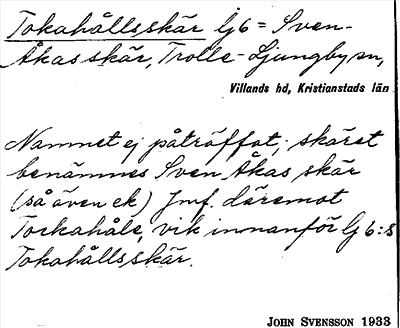 Tokahållsskär lj6 = Sven-
Åkasskär, Trolle-Ljungby sn,
Villands hd, Kristianstads län
Namnet ej påträffat, skäret
benämnes Sven Åkas skär
(så även ek) Jmf. däremot
Torkahåle, vik innanför lj6:s
Tokahållsskär.
JOHN SVENSSON 1933